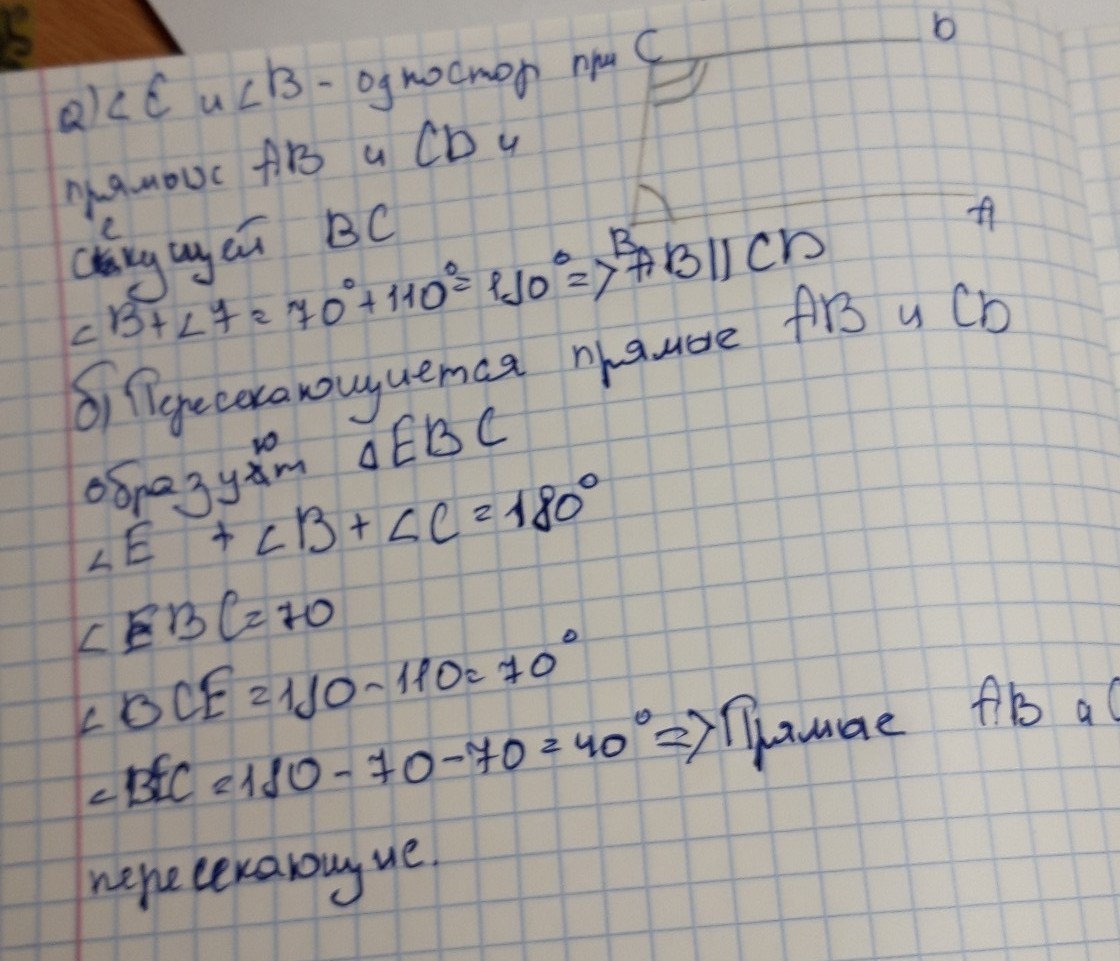 а) ∠C и ∠B - одностор при
прямыс AB и CD и
секущей BC
∠B+∠7=70°+110°=180°=>AB||CD
б) Пересекающуиется прямые AB и CD
образуют ΔEBC
∠E + ∠B + ∠C = 180°
∠EBC=70
∠BCE=180-110=70°
∠BEC=180-70-70=40°=>Прямые AB и C
пересекающие.
C D
B A